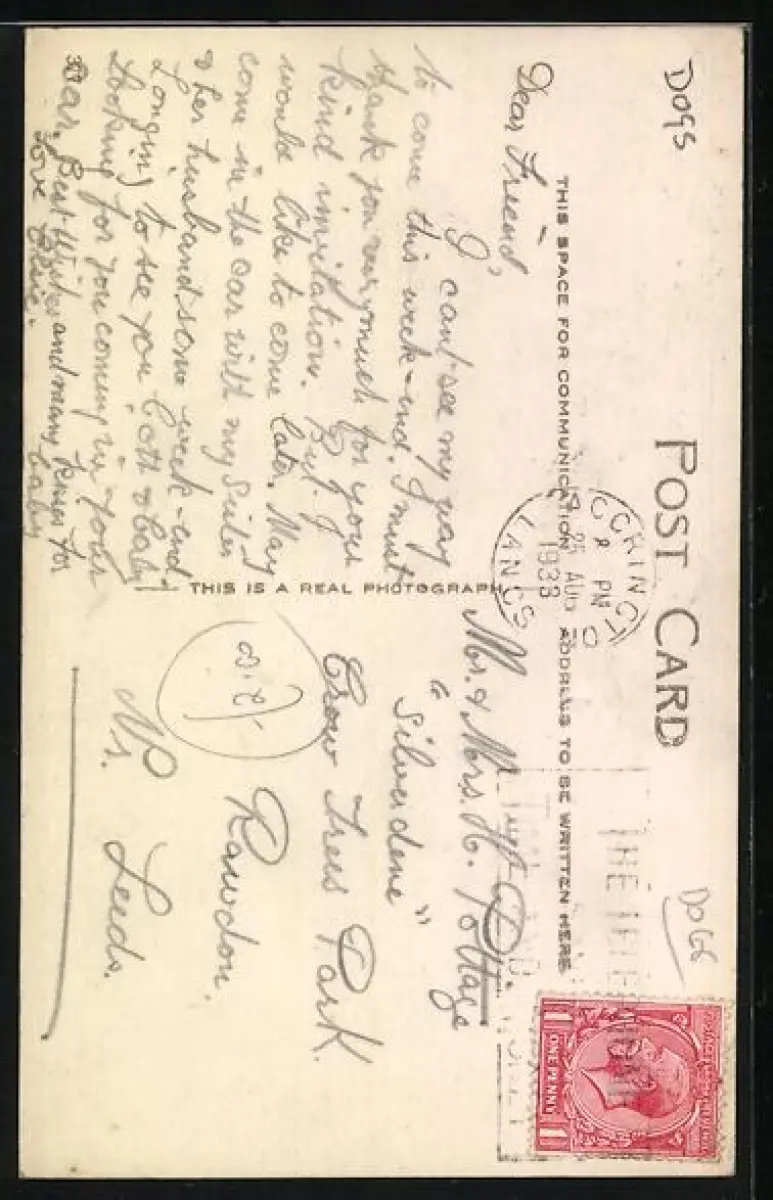 DOGS
POST CARD
DOGS
THIS SPACE FOR COMMUNICATION
ADDRESS TO BE WRITTEN HERE
ACCRINGTON
8 PM
25 AUG
1933
LANCS
THE TELE
ONE PENNY
THIS IS A REAL PHOTOGRAPH
Dear Friend,
I can't see my way
to come this week-end. I must
thank you very much for your
kind invitation. But I
would like to come later. May
come in the car with my sister
& her husband some week-end.
Longing to see you both & baby
Looking for you coming in your
car. Best Wishes and many kisses for
baby
Love
Mr. & Mrs. H. Pottage
"Silverdene"
Crow Trees Park.
Rawdon.
Nr. Leeds.